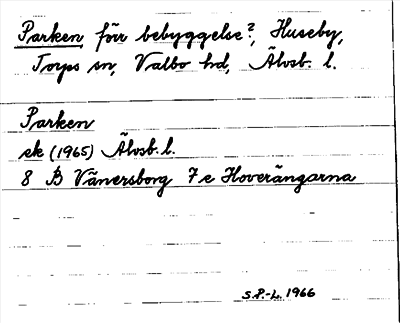 Parken förr bebyggelse?, Huseby,
Torps sn, Valbo hd, Älvsb. l.
Parken
ek (1965) Älvsb. l.
8 B Vänersborg 7e Hoverängarna
S.P.-L. 1966